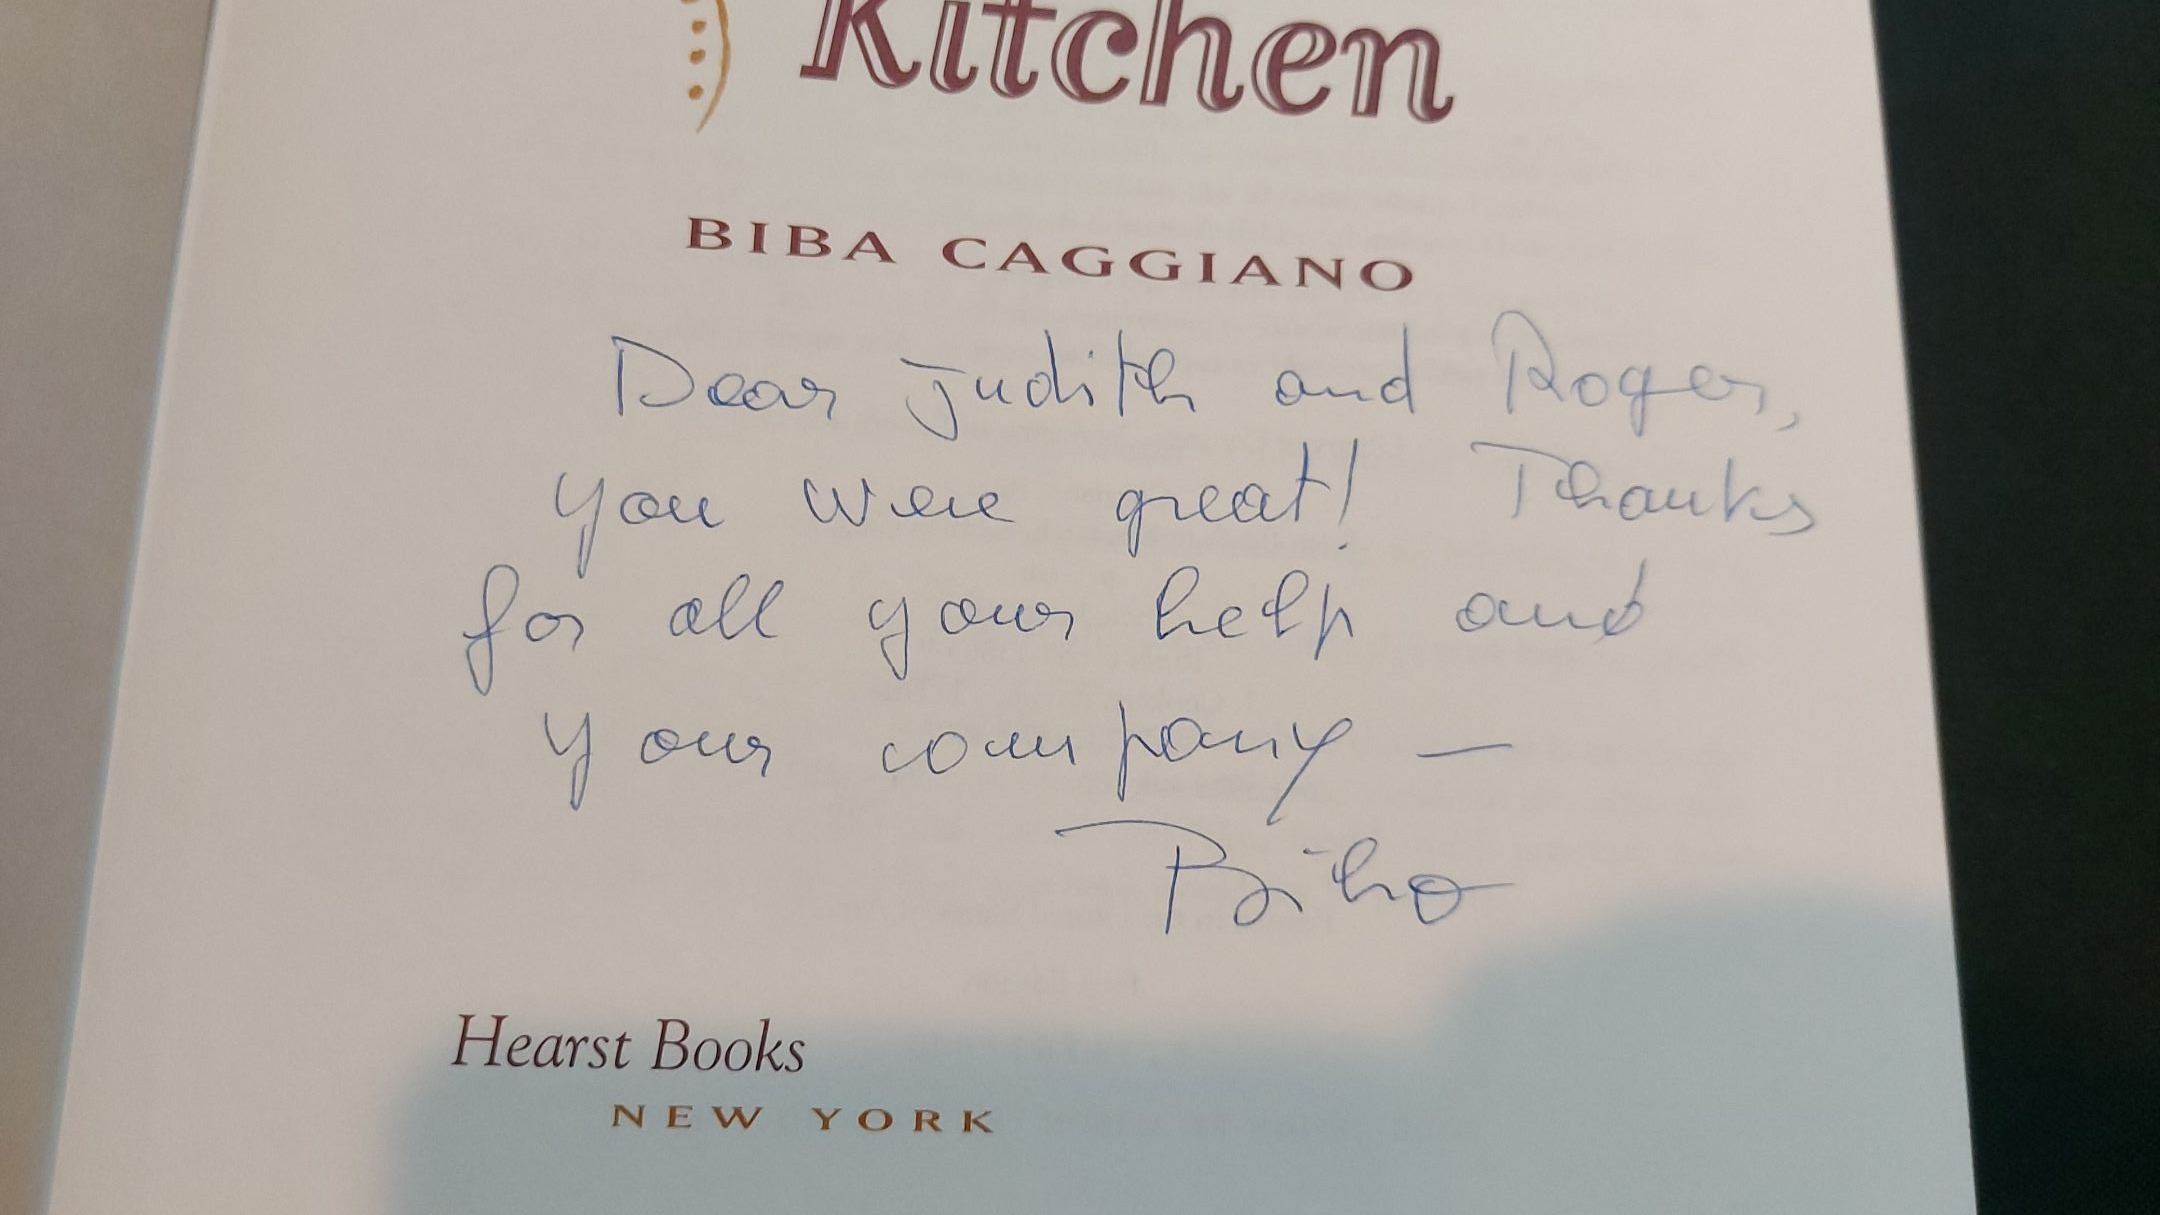 Kitchen
BIBA CAGGIANO
Dear Judith and Roger,
you were great! Thanks
for all your help and
your company —
Biba
Hearst Books
NEW YORK